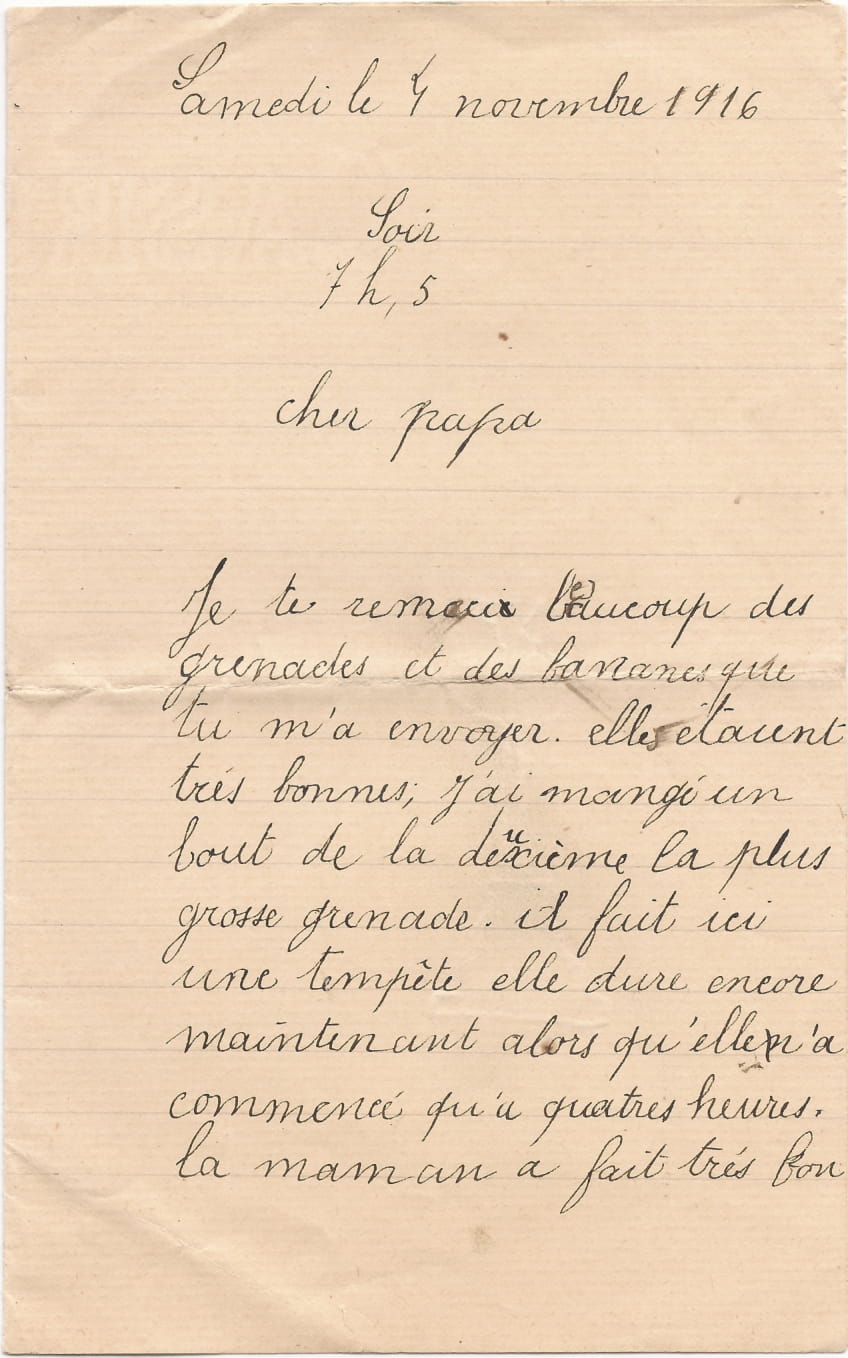 Samedi le 4 novembre 1916
Soir
7 h, 5
cher papa
Je te remercie beaucoup des
grenades et des bananes que
tu m'a envoyer. elles étaient
trés bonnes; j'ai mangé un
bout de la deuxième la plus
grosse grenade. il fait ici
une tempête elle dure encore
maintenant alors qu'elle n'a
commencé qu'a quatres heures.
la maman a fait trés bon